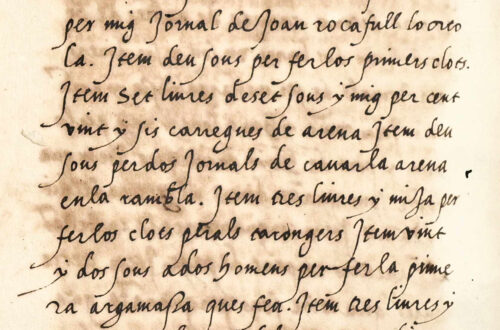 per mig Jornal de Joan rocafull lo creo
la. Item deu sous per fer los primers clots.
Item Set liures deset sous y mig per cent
vint y sis carregues de arena Item deu
sous per dos Jornals de cauar la arena
en la rambla. Item tres liures y mija per
fer los clots perals tarongers Item vint
y dos sous a dos homens per fer la prime
ra argamassa ques feu. Item tres liures y